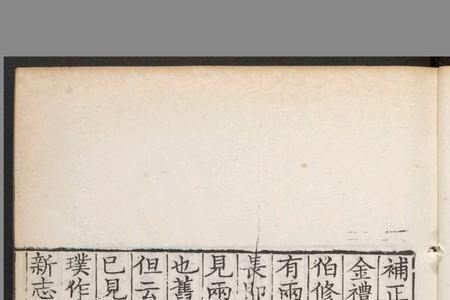 補正
金禮
伯修
有兩
長即
見兩
也舊
但云
已見
璞作
新志